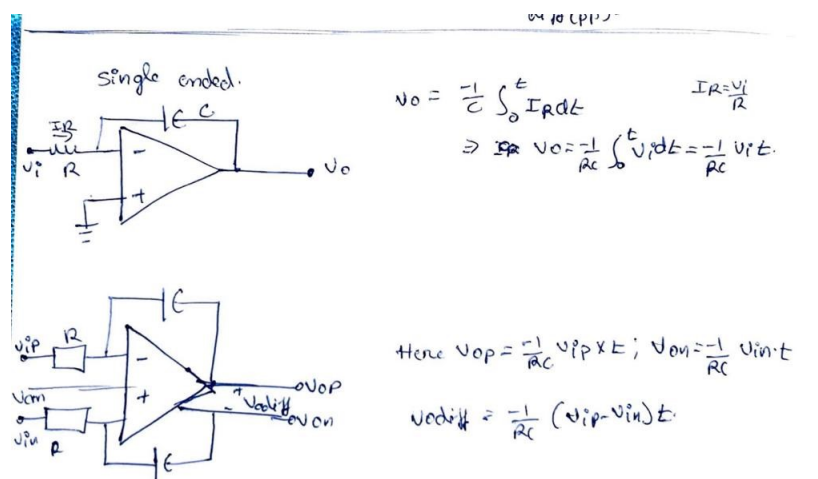 single ended.
C
IR
Vi R
-
+
Vo
Vo = -1/C ∫₀ᵗ IR dt IR = Vi/R
⇒ Vo = -1/RC ∫₀ᵗ Vi dt = -1/RC Vi t.
C
Vip R
-
Vcm
+
Vin R
C
VOP
+ Vodiff -
Von
Here Vop = -1/RC Vip x t ; Von = -1/RC Vin.t
Vodiff = -1/RC (Vip - Vin) t.